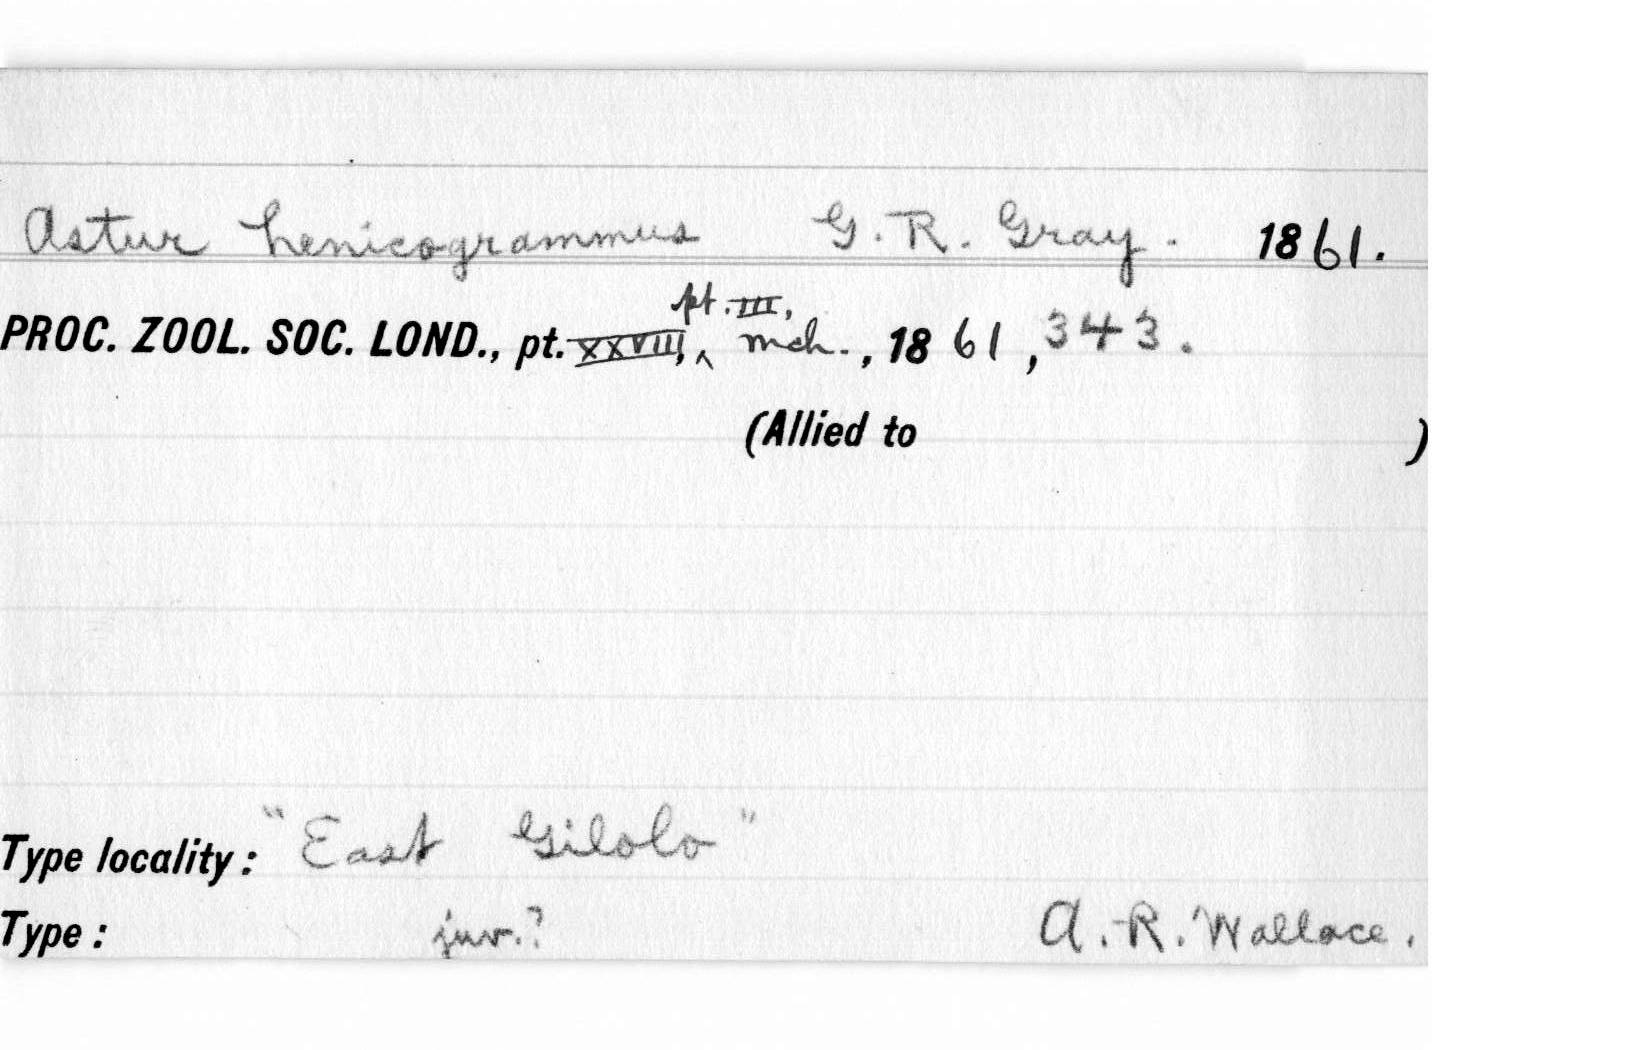 Astur henicogrammus G. R. Gray. 1861.
pt. III,
PROC. ZOOL. SOC. LOND., pt. XXVIII, ‸ mch., 1861, 343.
(Allied to )
Type locality: "East Gilolo"
Type: juv.? A. R. Wallace.